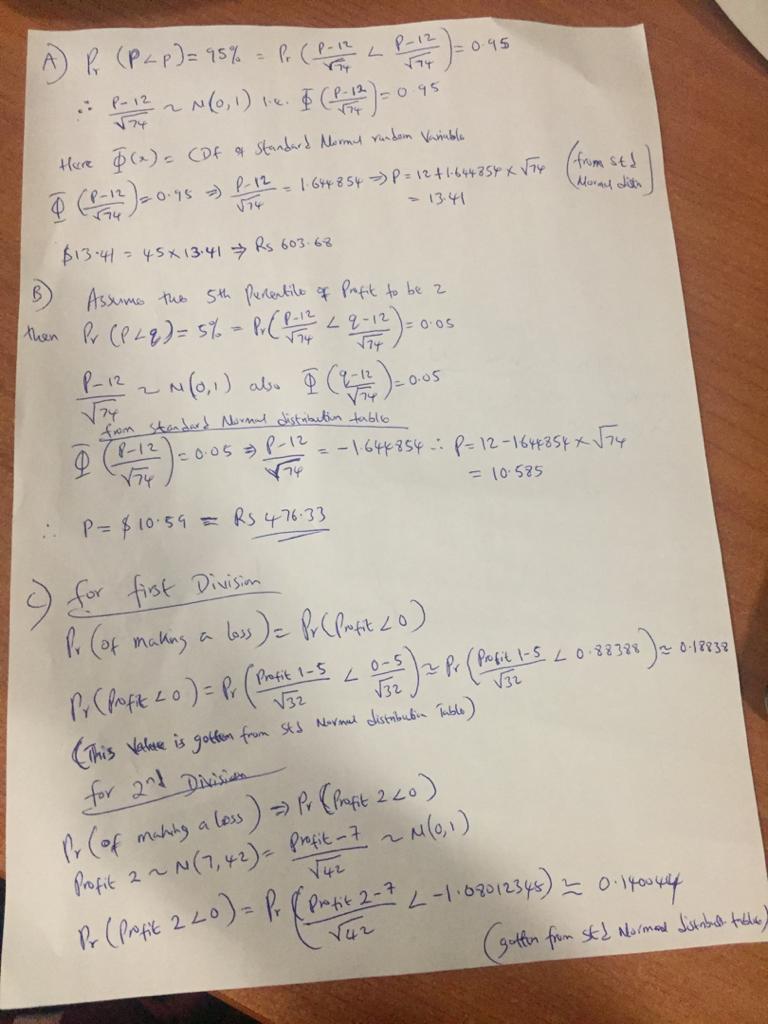 A) Pr (P<p) = 95% = Pr (P-12/√74 < P-12/√74) = 0.95
∴ P-12/√74 ~ N(0,1) i.e. Φ (P-12/√74) = 0.95
Here Φ(x) = CDF of Standard Normal random Variable
Φ (P-12/√74) = 0.95 ⇒ P-12/√74 = 1.644854 ⇒ P = 12+1.644854 × √74 (from std Normal distn)
= 13.41
$13.41 = 45×13.41 ⇒ Rs 603.68
B) Assume the 5th Percentile of Profit to be 2
then Pr (P<q) = 5% = Pr (P-12/√74 < q-12/√74) = 0.05
P-12/√74 ~ N(0,1) also Φ (q-12/√74) = 0.05
from standard Normal distribution table
Φ (P-12/√74) = 0.05 ⇒ P-12/√74 = -1.644854 ∴ P = 12-1.644854 × √74
= 10.585
∴ P = $10.59 = Rs 476.33
C) for first Division
Pr (of making a loss) = Pr (Profit<0)
Pr (Profit<0) = Pr (Profit 1-5/√32 < 0-5/√32) ≈ Pr (Profit 1-5/√32 < 0.88388) ≈ 0.18838
(This Value is gotten from Std Normal distribution Table)
for 2nd Division
Pr (of making a loss) ⇒ Pr (Profit 2<0)
Profit 2 ~ N(7,42) = Profit-7/√42 ~ N(0,1)
Pr (Profit 2<0) = Pr (Profit 2-7/√42 < -1.08012345) ≈ 0.1400444
(gotten from Std Normal distribution tables)